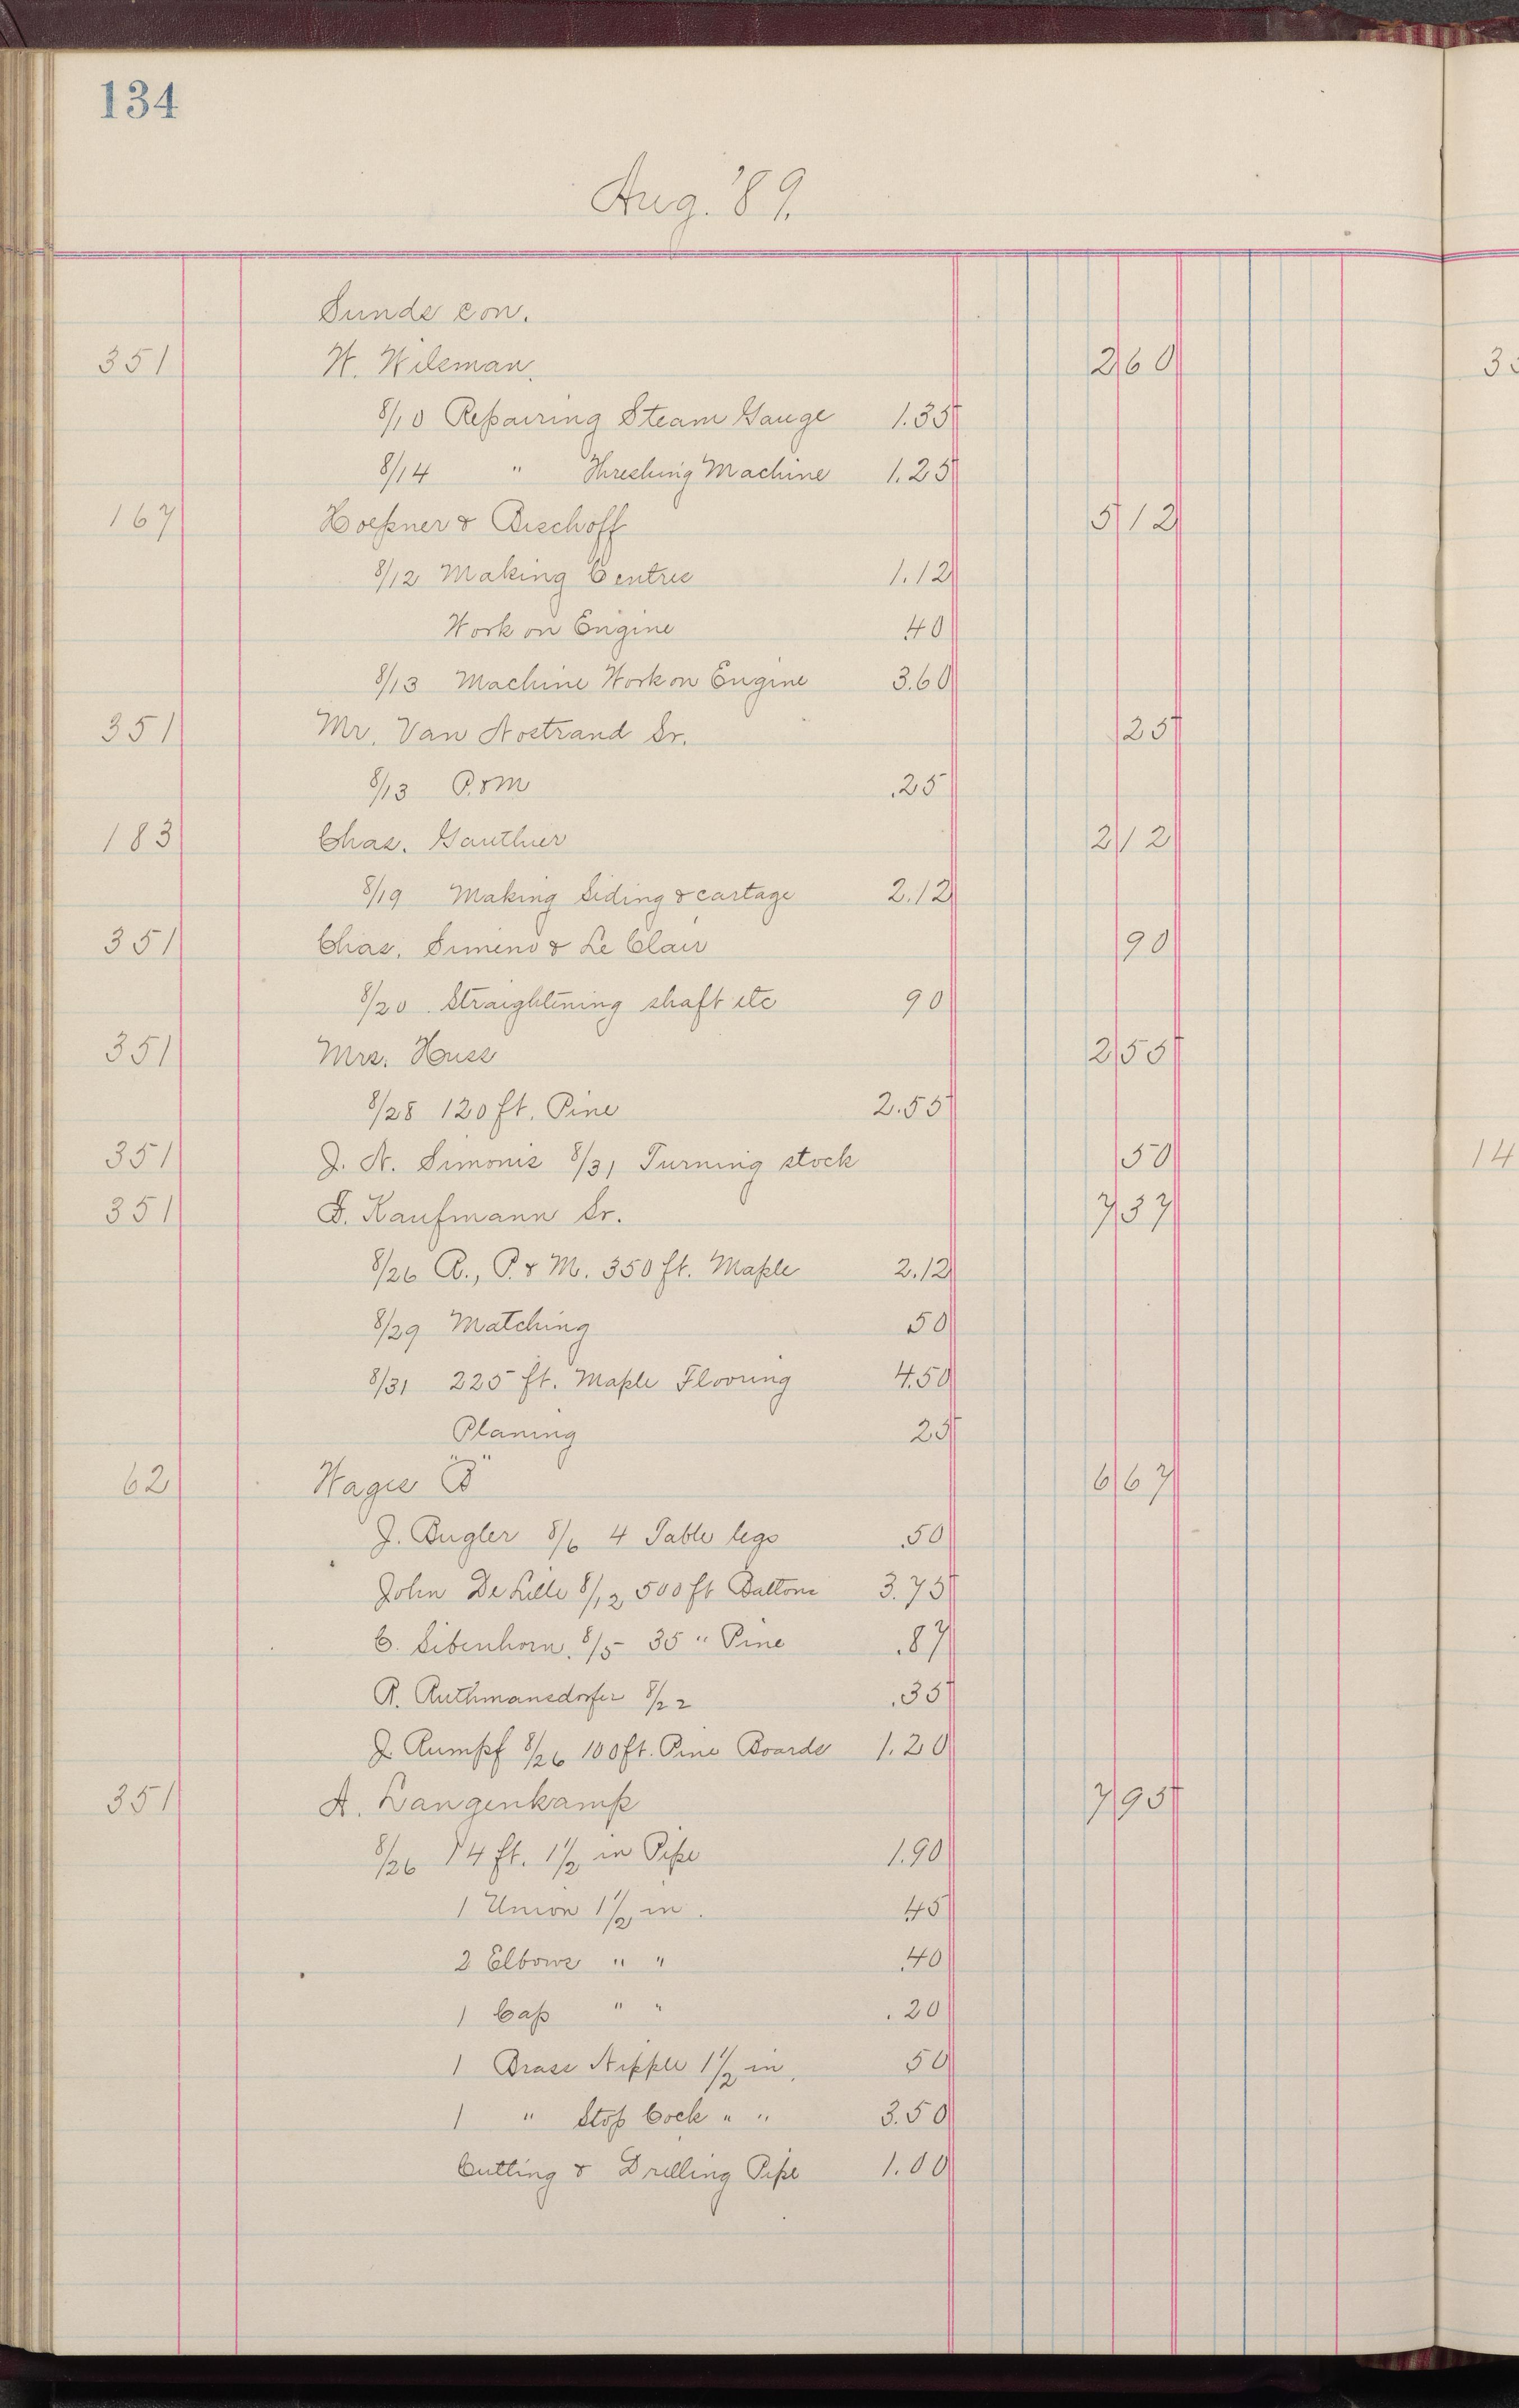 134
Aug. '89.
Sunds con.
351 W. Wileman. 2 60
8/10 Repairing Steam Gauge 1.35
8/14 " Threshing Machine 1.25
167 Hoepner & Bischoff 5 12
8/12 Making Centres 1.12
Work on Engine .40
8/13 Machine Work on Engine 3.60
351 Mr. Van Nostrand Sr. 25
8/13 P. & M .25
183 Chas. Gauthier 2 12
8/19 Making Siding & cartage 2.12
351 Chas. Simeno & Le Clair 90
8/20 Straightening shaft etc 90
351 Mrs. Huss 2 55
8/28 120 ft. Pine 2.55
351 J. N. Simonis 8/31 Turning stock 50
351 F. Kaufmann Sr. 7 37
8/26 R., P. & M. 350 ft. Maple 2.12
8/29 Matching .50
8/31 225 ft. Maple Flooring 4.50
Planing 25
62 Wages "B" 6 67
J. Bugler 8/6 4 Table legs .50
John De Lille 8/12 500 ft Battons 3.75
C. Sibenhorn. 8/5 35 " Pine .87
R. Ruthmansdorfer 8/22 .35
J. Rumpf 8/26 100 ft. Pine Boards 1.20
351 A. Langenkamp 7 95
8/26 14 ft. 1 1/2 in Pipe 1.90
1 Union 1 1/2 in. .45
2 Elbows " " .40
1 Cap " " .20
1 Brass Nipple 1 1/2 in. 50
1 " Stop Cock " " 3.50
Cutting & Drilling Pipe 1.00
14